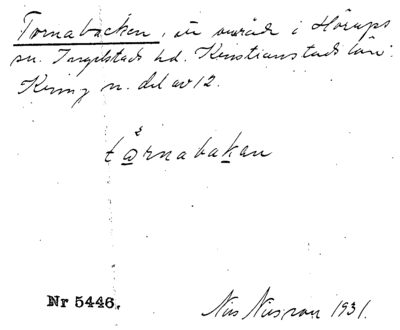 Tornabacken, ett område i Hörups
sn. Ingelstads hd. Kristianstads län.
Kring n. del av 12.
tårnabakan
Nr 5446.
Nils Nilsson 1931.